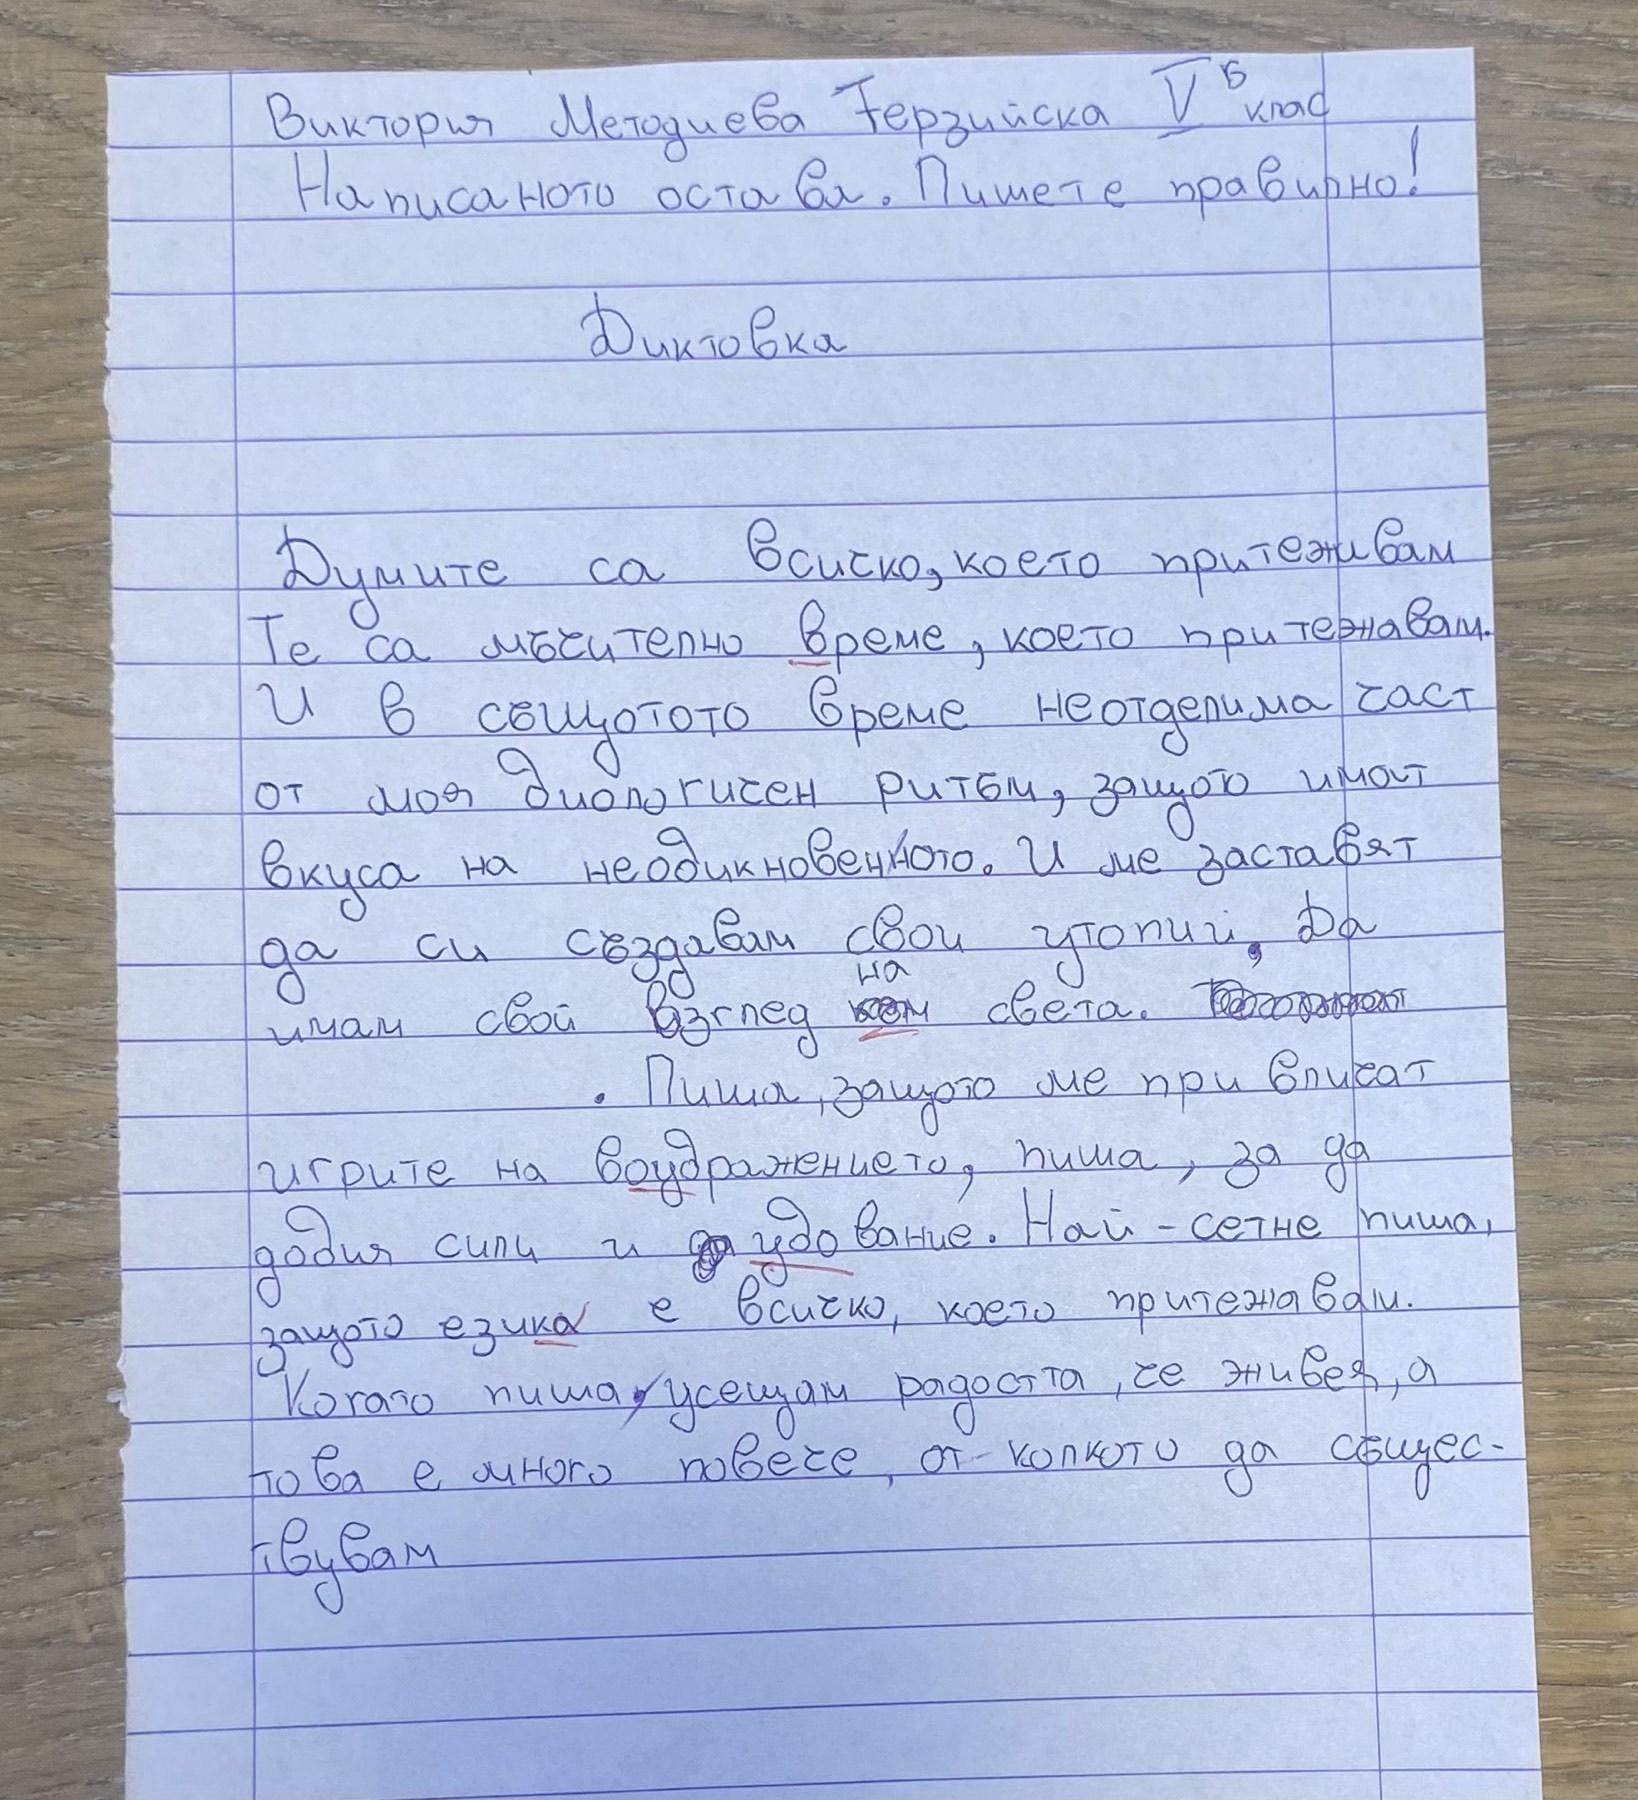 Виктория Методиева Терзийска V б клас
Написаното остава. Пишете правилно!
Диктовка
Думите са всичко, което притеживам
Те са мъчително време, което притежавам.
И в същотото време неотделима част
от моя биологичен ритъм, защото имат
вкуса на необикновенното. И ме заставят
да си създавам свои утопии, Да
имам свой взглед на света.
. Пиша, защото ме при вличат
игрите на воубражението, пиша, за да
добия сили и удование. Най-сетне пиша,
защото езика е всичко, което притежавам.
Когато пиша, усещам радостта, че живея, а
това е много повече, от-колкото да същес-
твувам